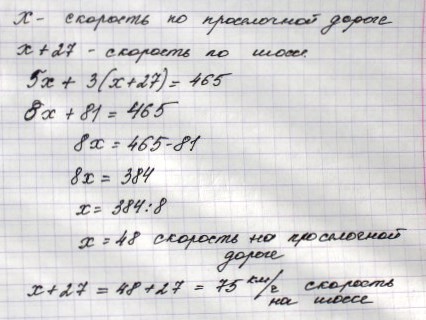 x - скорость по просёлочной дороге
x + 27 - скорость по шоссе.
5x + 3(x+27) = 465
8x + 81 = 465
8x = 465-81
8x = 384
x = 384:8
x = 48 скорость по просёлочной
дороге
x+27 = 48+27 = 75 км/ч скорость
на шоссе